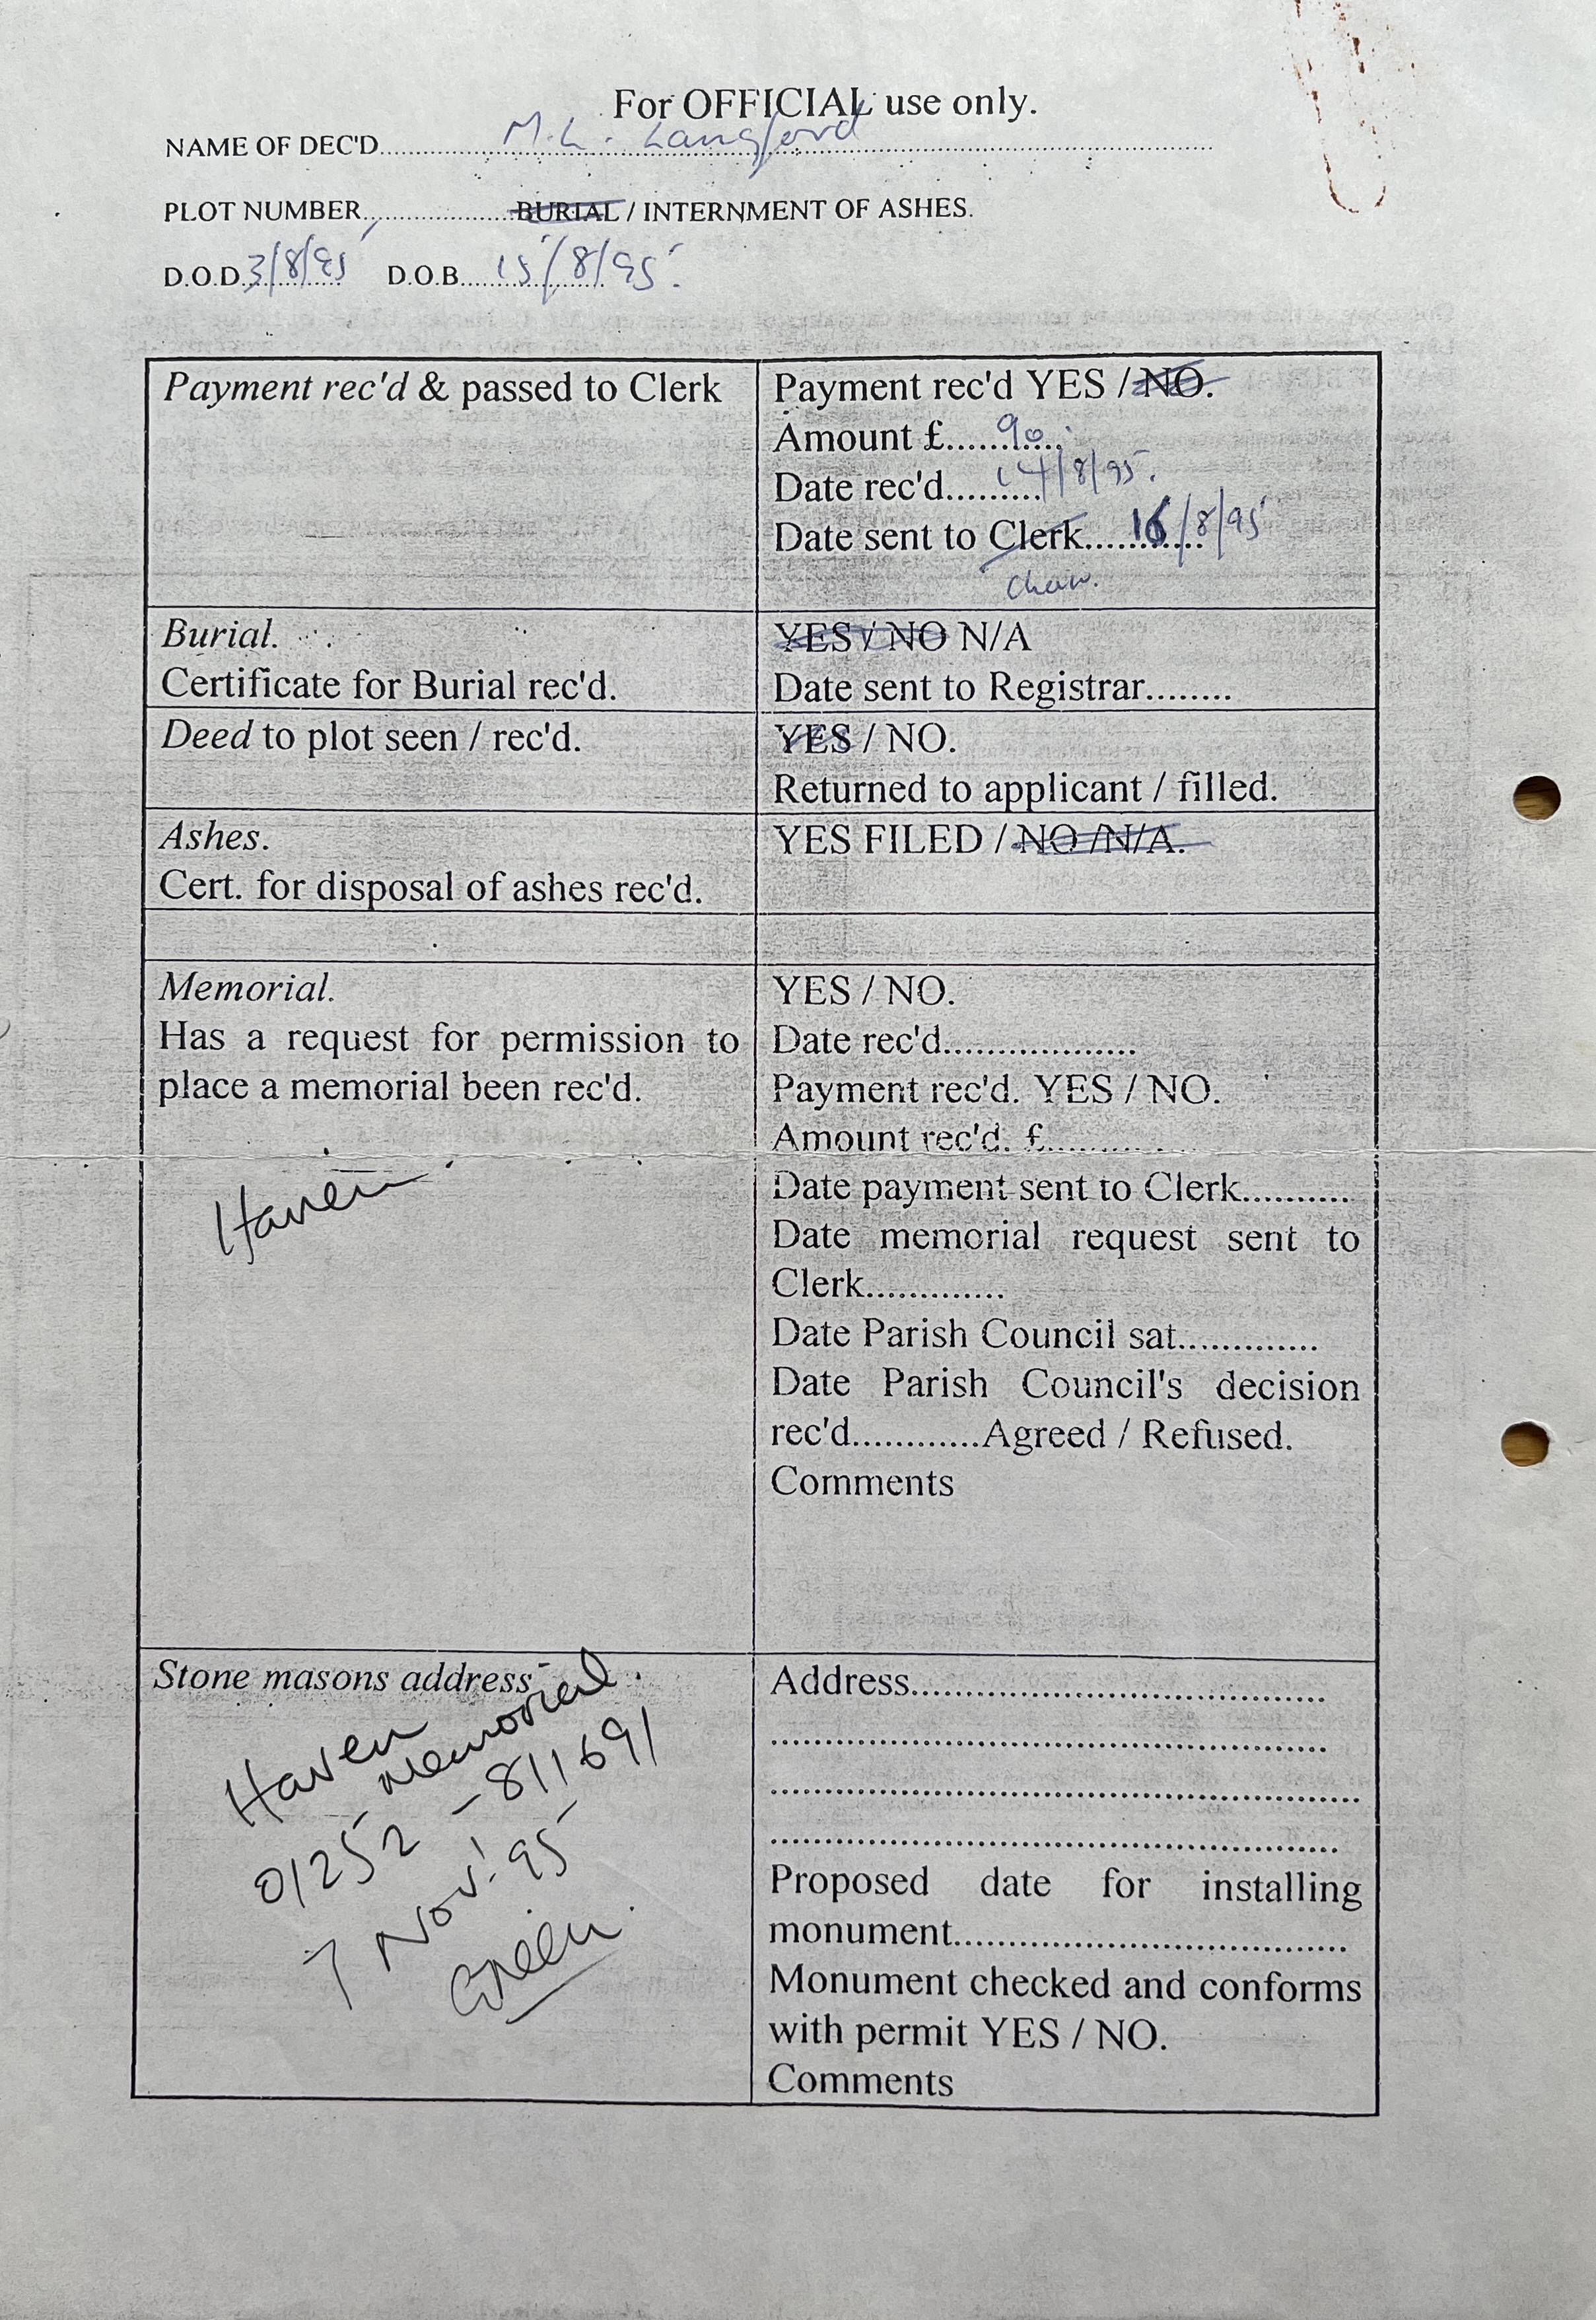 For OFFICIAL use only.
NAME OF DEC'D.......... M.L. Langford ..........
PLOT NUMBER.......... BURIAL / INTERNMENT OF ASHES.
D.O.D. 3/8/95 D.O.B. 15/8/95.
Payment rec'd & passed to Clerk
Payment rec'd YES / NO.
Amount £...... 90.
Date rec'd......... 14/8/95.
Date sent to Clerk............ 16/8/95
Chair.
Burial.
Certificate for Burial rec'd.
YES / NO N/A
Date sent to Registrar........
Deed to plot seen / rec'd.
YES / NO.
Returned to applicant / filled.
Ashes.
Cert. for disposal of ashes rec'd.
YES FILED / NO /N/A.
Memorial.
Has a request for permission to
place a memorial been rec'd.
Haven
YES / NO.
Date rec'd...................
Payment rec'd. YES / NO.
Amount rec'd. £..............
Date payment sent to Clerk...........
Date memorial request sent to
Clerk..............
Date Parish Council sat..............
Date Parish Council's decision
rec'd.............Agreed / Refused.
Comments
Stone masons address
Haven
Memorial
01252 - 811691
7 Nov! 95
Green.
Address..........................................
........................................................
............................................................
.........................................................
Proposed date for installing
monument.......................................
Monument checked and conforms
with permit YES / NO.
Comments